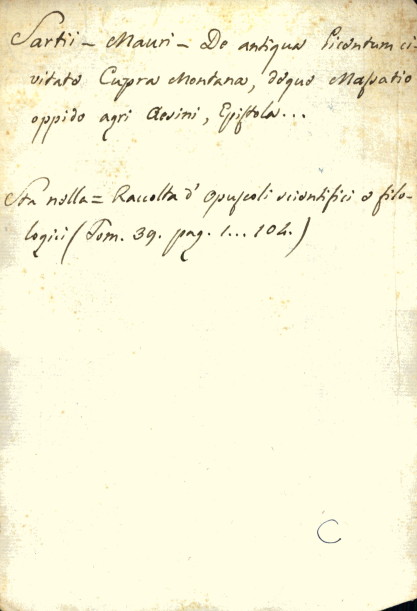 Sartii - Mauri - De antiqua Picentum ci-
vitate Cupra Montana, deque Massatio
oppido agri Aesini, Epistola...
Sta nella = Raccolta d' Opuscoli scientifici e filo-
logici (Tom. 39. pag. 1... 104.)
C